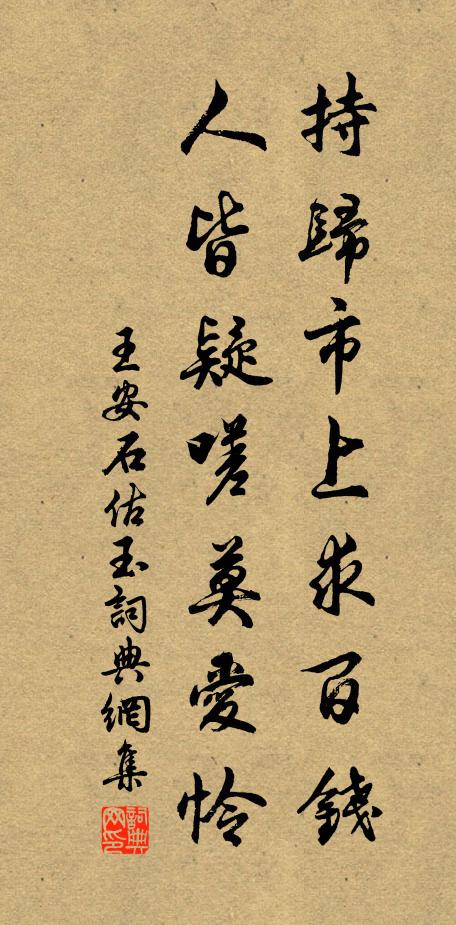 持歸市上求百錢
人皆疑嗟莫愛憐
王安石估玉詞典網集
詞典網印